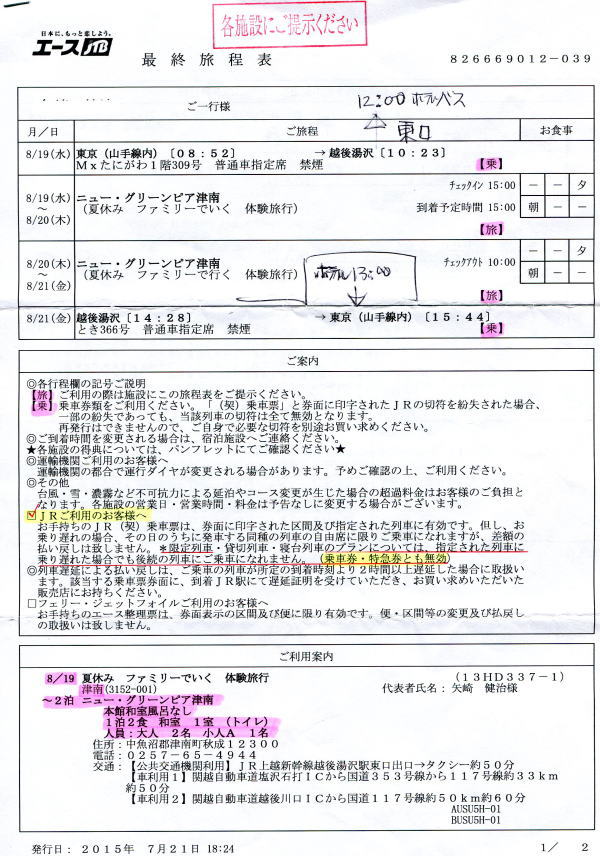 各施設にご提示ください
日本に、もっと恋しよう。
エースJTB
最終旅程表
826669012-039
ご一行様
12:00 ホテルバス
東口
月／日 ご旅程 お食事
8/19(水) 東京（山手線内）〔08：52〕 →越後湯沢〔10：23〕
Ｍｘたにがわ１階309号 普通車指定席 禁煙 【乗】
8/19(水) ニュー・グリーンピア津南 チェックイン 15:00 － － 夕
～ （夏休み ファミリーでいく 体験旅行） 到着予定時間 15:00 朝 － －
8/20(木) 【旅】
8/20(木) ニュー・グリーンピア津南 チェックアウト 10:00 － － 夕
～ （夏休み ファミリーで行く 体験旅行） 朝 － －
8/21(金) 【旅】
ホテル 13:00
8/21(金) 越後湯沢〔14：28〕 →東京（山手線内）〔15：44〕
とき366号 普通車指定席 禁煙 【乗】
ご案内
◎各行程欄の記号ご説明
【旅】ご利用の際は施設にこの旅程表をご提示ください。
【乗】乗車券類をご利用ください。「（契）乗車票」と券面に印字されたＪＲの切符を紛失された場合、
一部の紛失であっても、当該列車の切符は全て無効となります。
再発行はできませんので、ご自身で必要な切符を別途お買い求めください。
◎ご到着時間を変更される場合は、宿泊施設へご連絡ください。
★各施設の得典については、パンフレットにてご確認ください★
◎運輸機関ご利用のお客様へ
運輸機関の都合で運行ダイヤが変更される場合があります。予めご確認の上、ご利用ください。
◎その他
台風・雪・濃霧など不可抗力による延泊やコース変更が生じた場合の超過料金はお客様のご負担と
なります。各施設の営業日・営業時間・料金は予告なしに変更する場合がございます。
☑ＪＲご利用のお客様へ
お手持ちのＪＲ（契）乗車票は、券面に印字された区間及び指定された列車に有効です。但し、お
乗り遅れの場合、その日のうちに発車する同種の列車の自由席に限りご乗車になれますが、差額の
払い戻しは致しません。＊限定列車・貸切列車・寝台列車のプランについては、指定された列車に
乗り遅れた場合でも後続の列車にご乗車になれません。（乗車券・特急券とも無効）
◎列車遅延による払い戻しは、ご乗車の列車が所定の到着時刻より２時間以上遅延した場合に取扱い
ます。該当する乗車票券面に、到着ＪＲ駅にて遅延証明を受けていただき、お買い求めいただいた
販売店にお持ちください。
□フェリー・ジェットフォイルご利用のお客様へ
お手持ちのエース整理票は、券面表示の区間及び便に限り有効です。便・区間等の変更及び払戻し
の取扱いは致しません。
ご利用案内
8／19 夏休み ファミリーでいく 体験旅行 （13HD337－1）
津南(3152-001) 代表者氏名：矢崎 健治様
～２泊 ニュー・グリーンピア津南
本館和室風呂なし
１泊２食 和室 １室 （トイレ）
人員：大人 ２名 小人Ａ １名
住所：中魚沼郡津南町秋成１２３００
電話：０２５７－６５－４９４４
交通：【公共交通機関利用】ＪＲ上越新幹線越後湯沢駅東口出口→タクシー約５０分
【車利用１】関越自動車道塩沢石打ＩＣから国道３５３号線から１１７号線約３３ｋｍ
約５０分
【車利用２】関越自動車道越後川口ＩＣから国道１１７号線約５０ｋｍ約６０分
AUSU5H-01
BUSU5H-01
発行日： ２０１５年 ７月２１日 18:24 1／ 2